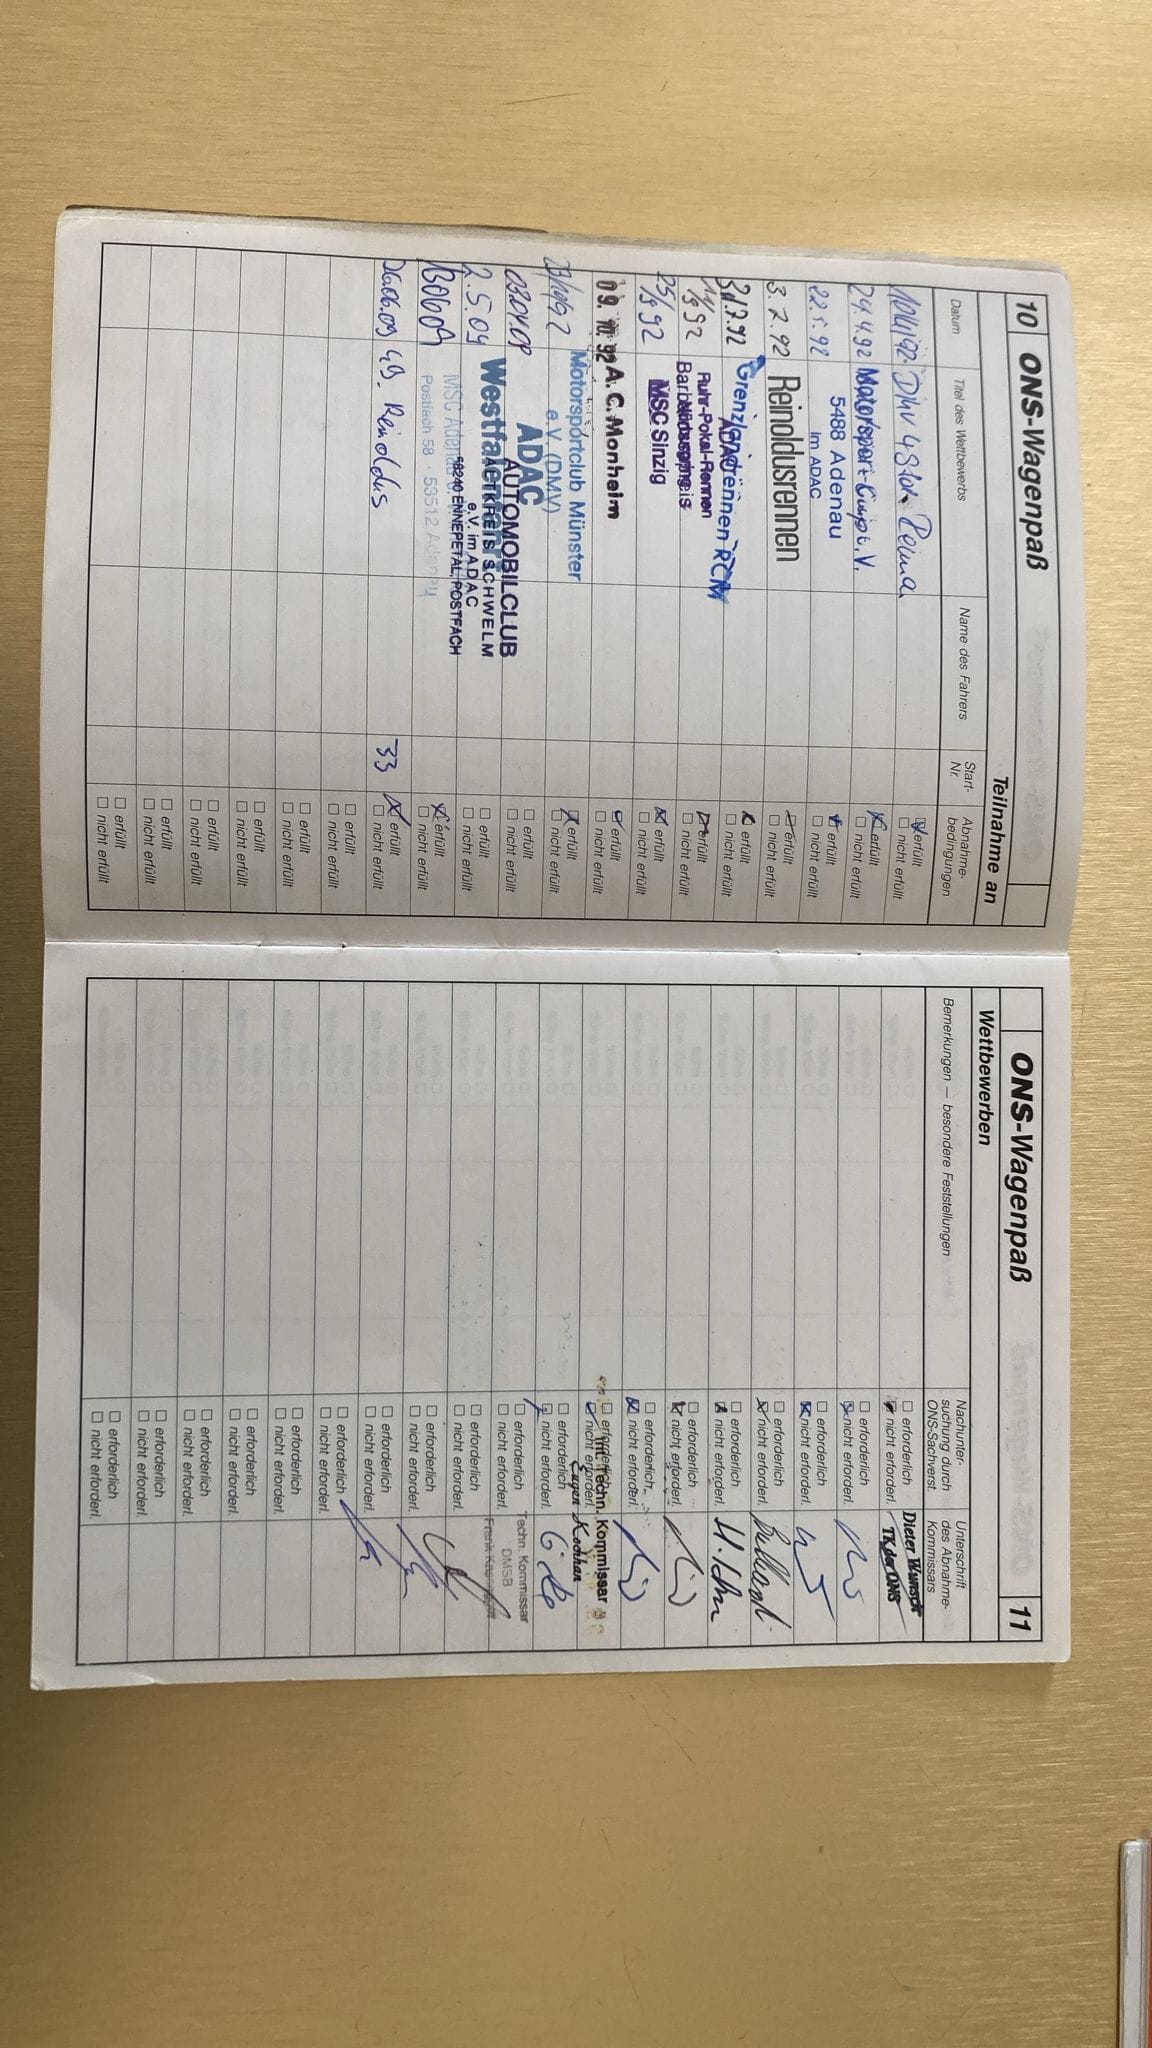 10 ONS-Wagenpaß
Teilnahme an
Datum Titel des Wettbewerbs Name des Fahrers Start-Nr. Abnahme-bedingungen
DMV
☒ erfüllt
☐ nicht erfüllt
24.4.92 Motorsport-
☒ erfüllt
☐ nicht erfüllt
22.5.92 5488 Adenau
im ADAC
☒ erfüllt
☐ nicht erfüllt
3.7.92 Reinoldusrennen
☒ erfüllt
☐ nicht erfüllt
31.7.92 Grenzlandrennen RCM
ADAC
☒ erfüllt
☐ nicht erfüllt
Ruhr-Pokal-Rennen
☒ erfüllt
☐ nicht erfüllt
25/9 92 MSC Sinzig
☒ erfüllt
☐ nicht erfüllt
09. 10. 92 A. C. Monheim
☒ erfüllt
☐ nicht erfüllt
Motorsportclub Münster
e.V. (DMV)
☒ erfüllt
☐ nicht erfüllt
03.04.09 ADAC
AUTOMOBILCLUB
☐ erfüllt
☐ nicht erfüllt
2.5.09 Westfalen
ALTKREIS SCHWELM
e.V. im ADAC
58240 ENNEPETAL, POSTFACH
☐ erfüllt
☐ nicht erfüllt
130609 MSC Adenau
Postfach 58 · 53512 Adenau
☒ erfüllt
☐ nicht erfüllt
26.06.09 49. Reinoldus 33
☒ erfüllt
☐ nicht erfüllt
☐ erfüllt
☐ nicht erfüllt
☐ erfüllt
☐ nicht erfüllt
☐ erfüllt
☐ nicht erfüllt
☐ erfüllt
☐ nicht erfüllt
☐ erfüllt
☐ nicht erfüllt
☐ erfüllt
☐ nicht erfüllt
ONS-Wagenpaß 11
Wettbewerben
Bemerkungen — besondere Feststellungen
Nachunter-
suchung durch
ONS-Sachverst.
Unterschrift
des Abnahme-
Kommissars
☐ erforderlich
☒ nicht erforderl.
Dieter Wunsch
TK der ONS
☐ erforderlich
☒ nicht erforderl.
☐ erforderlich
☒ nicht erforderl.
☐ erforderlich
☒ nicht erforderl.
☐ erforderlich
☒ nicht erforderl.
☐ erforderlich
☒ nicht erforderl.
☐ erforderlich
☒ nicht erforderl.
☐ erforderlich
☒ nicht erforderl.
Techn. Kommissar
☐ erforderlich
☒ nicht erforderl.
☐ erforderlich
☐ nicht erforderl.
Techn. Kommissar
DMSB
Frank
☐ erforderlich
☐ nicht erforderl.
☐ erforderlich
☐ nicht erforderl.
☐ erforderlich
☐ nicht erforderl.
☐ erforderlich
☐ nicht erforderl.
☐ erforderlich
☐ nicht erforderl.
☐ erforderlich
☐ nicht erforderl.
☐ erforderlich
☐ nicht erforderl.
☐ erforderlich
☐ nicht erforderl.
☐ erforderlich
☐ nicht erforderl.